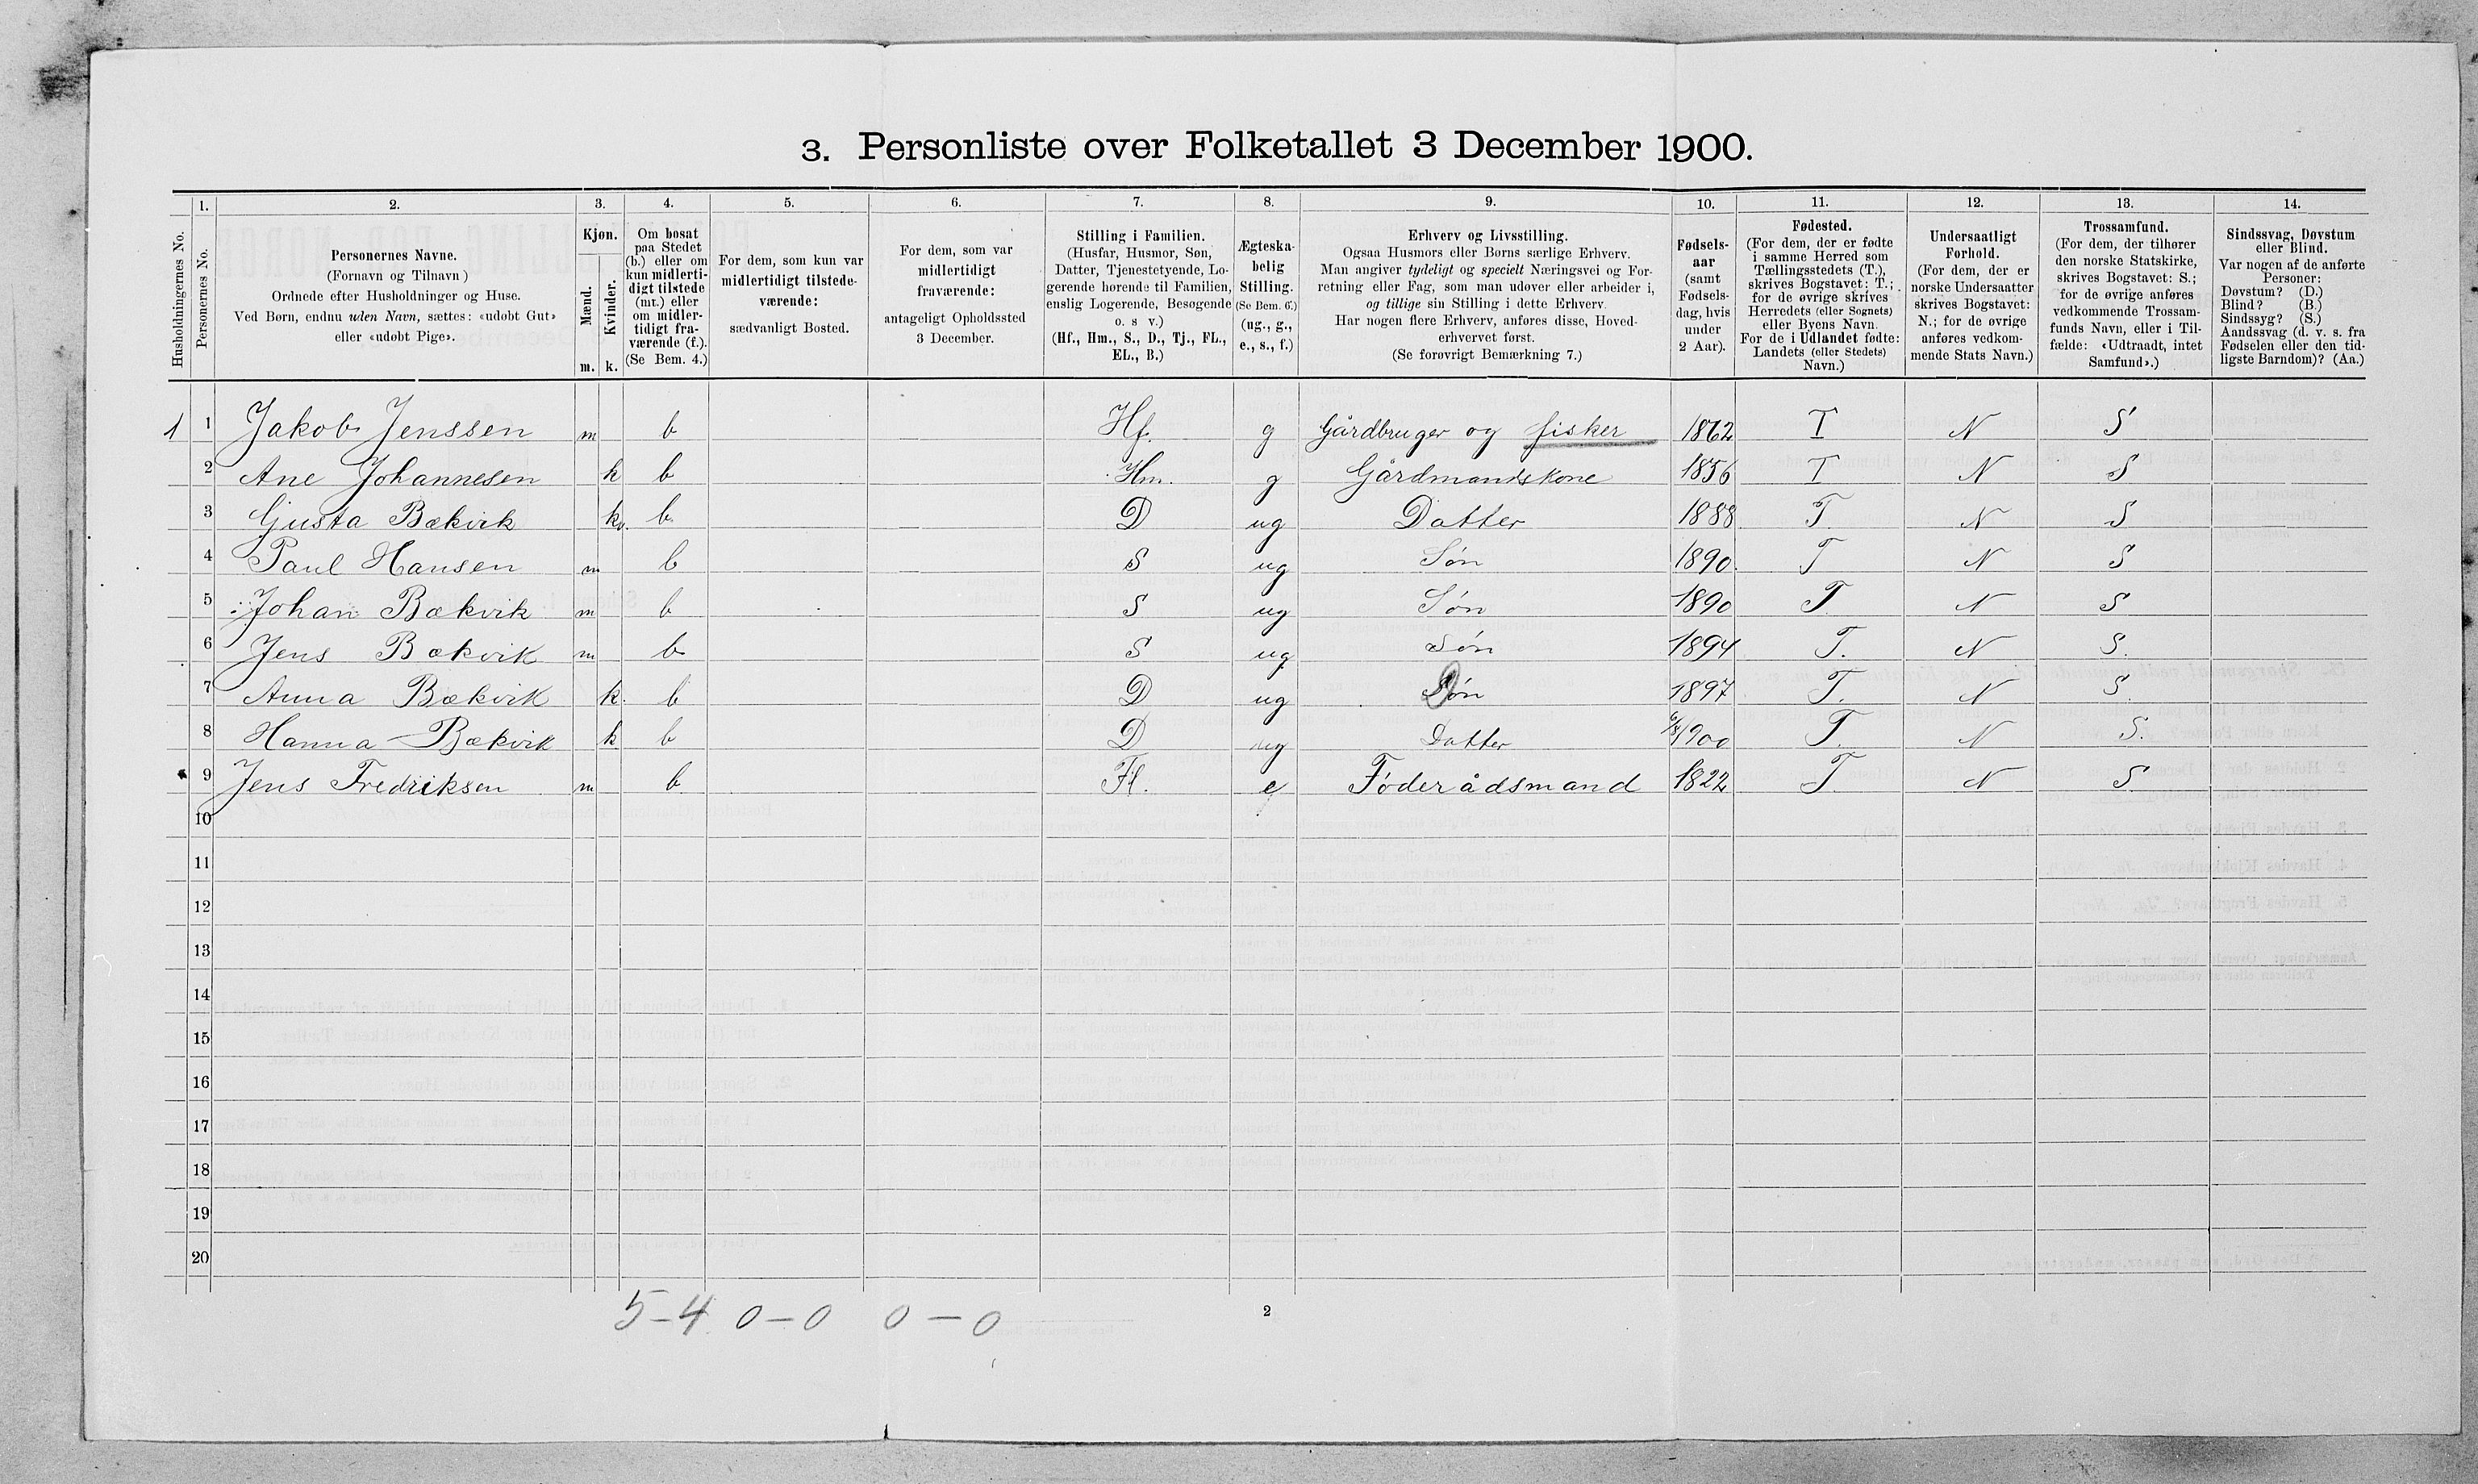 3. Personliste over Folketallet 3 December 1900.
1. 2. 3. 4. 5. 6. 7. 8. 9. 10. 11. 12. 13. 14.
Husholdningernes No.
Personernes No.
Personernes Navne.
(Fornavn og Tilnavn)
Ordnede efter Husholdninger og Huse.
Ved Børn, endnu uden Navn, sættes: «udøbt Gut»
eller «udøbt Pige».
Kjøn.
Mænd.
Kvinder.
m. k.
Om bosat
paa Stedet
(b.) eller om
kun midlerti-
digt tilstede
(mt.) eller
om midler-
tidigt fra-
værende (f.).
(Se Bem. 4.)
For dem, som kun var
midlertidigt tilstede-
værende:
sædvanligt Bosted.
For dem, som var
midlertidigt
fraværende:
antageligt Opholdssted
3 December.
Stilling i Familien.
(Husfar, Husmor, Søn,
Datter, Tjenestetyende, Lo-
gerende hørende til Familien,
enslig Logerende, Besøgende
o. s v.)
(Hf., Hm., S., D., Tj., FL.,
EL., B.)
Ægteska-
belig
Stilling.
(Se Bem. 6.)
(ug., g.,
e., s., f.)
Erhverv og Livsstilling.
Ogsaa Husmors eller Børns særlige Erhverv.
Man angiver tydeligt og specielt Næringsvei og For-
retning eller Fag, som man udøver eller arbeider i,
og tillige sin Stilling i dette Erhverv.
Har nogen flere Erhverv, anføres disse, Hoved-
erhvervet først.
(Se forøvrigt Bemærkning 7.)
Fødsels-
aar
(samt
Fødsels-
dag, hvis
under
2 Aar).
Fødested.
(For dem, der er fødte
i samme Herred som
Tællingsstedets (T.),
skrives Bogstavet: T.;
for de øvrige skrives
Herredets (eller Sognets)
eller Byens Navn.
For de i Udlandet fødte:
Landets (eller Stedets)
Navn.)
Undersaatligt
Forhold.
(For dem, der er
norske Undersaatter
skrives Bogstavet:
N.; for de øvrige
anføres vedkom-
mende Stats Navn.)
Trossamfund.
(For dem, der tilhører
den norske Statskirke,
skrives Bogstavet: S.;
for de øvrige anføres
vedkommende Trossam-
funds Navn, eller i Til-
fælde: «Udtraadt, intet
Samfund».)
Sindssvag, Døvstum
eller Blind.
Var nogen af de anførte
Personer:
Døvstum? (D.)
Blind? (B.)
Sindssyg? (S.)
Aandssvag (d. v. s. fra
Fødselen eller den tid-
ligste Barndom)? (Aa.)
1 1 Jakob Jenssen m b Hf. g Gårdbruger og fisker 1862 T N S
2 Ane Johannesen k b Hm. g Gårdmandskone 1856 T N S
3 Gusta Bækvik k. b. D ug Datter 1888 T. N S
4 Paul Hansen m b S ug Søn 1890. T N S
5 Johan Bækvik m b S ug Søn 1890 T. N S
6 Jens Bækvik m b S ug Søn 1894 T. N S.
7 Anna Bækvik k. b D ug Søn 1897 T. N S.
8 Hanna Bækvik k b D ug Datter 1900 T. N S.
9 Jens Fredriksen m b. Fl. e Føderådsmand 1822 T. N S.
10
11
12
13
14
15
16
17
18
19
20
5-4 0-0 0-0
2